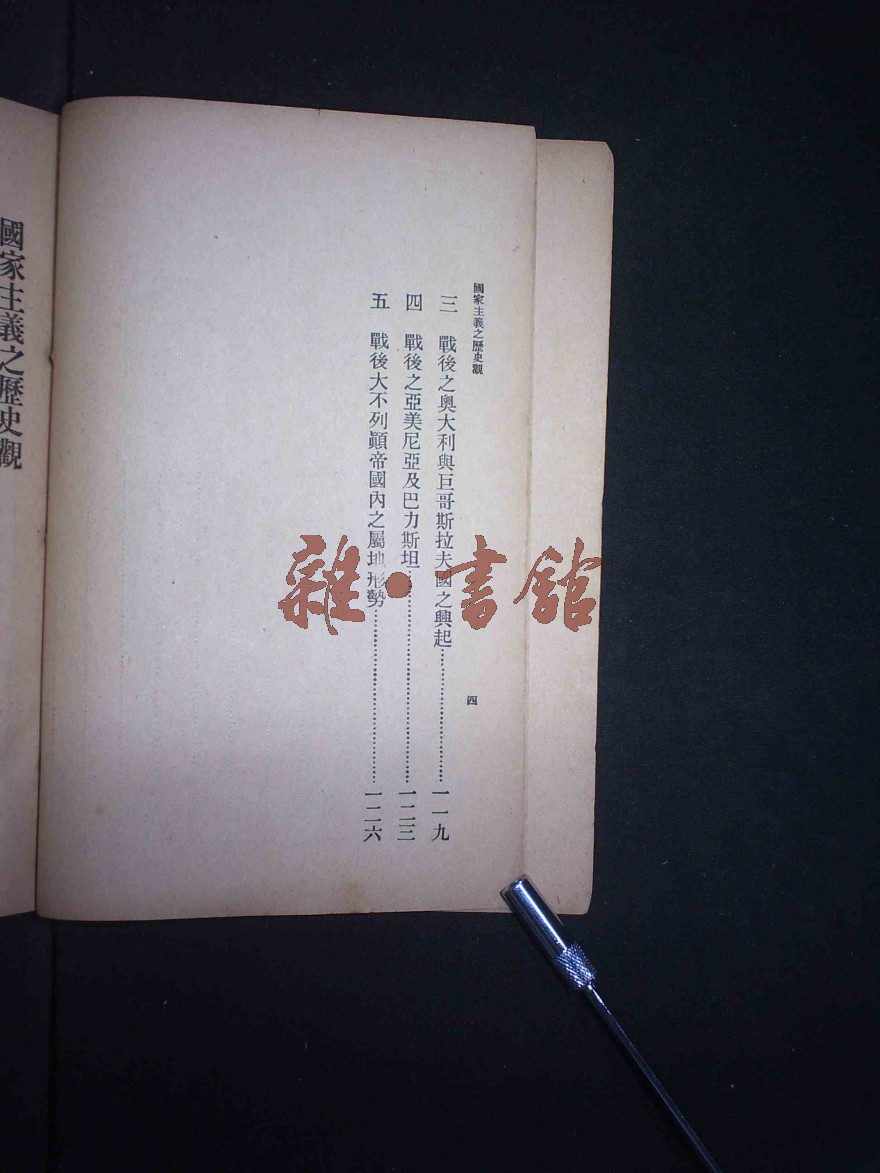 國家主義之歷史觀
四
三 戰後之奧大利與巨哥斯拉夫國之興起…………一一九
四 戰後之亞美尼亞及巴力斯坦…………一二三
五 戰後大不列顚帝國內之屬地形勢…………一二六
國家主義之歷史觀
雜·書館